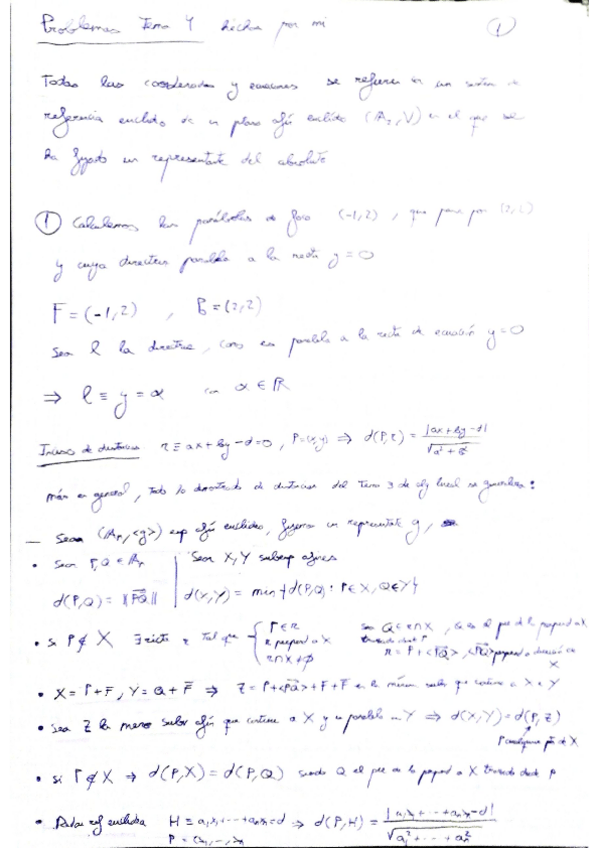 Problemas Tema 4 hechos por mi
①
Todas las coordenadas y ecuaciones se refieren en un sistema de
referencia euclideo de un plano afín euclídeo (A₂, V) en el que se
ha fijado un representante del absoluto
① Calculemos las parábolas de foco (-1,2), que pasa por (2,2)
y cuya directriz paralela a la recta y=0
F=(-1,2) , B=(2,2)
Sea l la directriz, como es paralela a la recta de ecuación y=0
⇒ l ≡ y = α con α ∈ ℝ
Inciso de distancias r ≡ ax+by-d=0, P=(x,y) ⇒ d(P,r) = |ax+by-d| / √(a²+b²)
más en general, todo lo demostrado de distancias del Tema 3 de alg lineal se generaliza:
- Sean (Aₙ,<g>) esp afín euclídeo, fijemos un representante g,
• Sean P,Q ∈ Aₙ | Sean X,Y subesp afines
d(P,Q) = ||PQ|| | d(X,Y) = min {d(P,Q) : P∈X, Q∈Y}
• si P∉X ∃ recta r tal que { P∈r
r perpend a X
r∩X≠∅
Q∈r∩X, es el pie de la perpend a X
trazada desde P
r = P+<PQ>, <PQ> perpend a dirección de
X
• X=P+F, Y=Q+F ⇒ Z=P+<PQ>+F+F es la mínima que contiene a X e Y
• Sea Z la menor subv afín que contiene a X y es paralela a Y ⇒ d(X,Y)=d(P,Z)
P cualquiera pto de X
• si P∉X ⇒ d(P,X) = d(P,Q) siendo Q el pie de la perpend a X trazada desde P
• Dada ref euclídea H ≡ a₁x₁+···+aₙxₙ=d ⇒ d(P,H) = |a₁x₁+···+aₙxₙ-d| / √(a₁²+···+aₙ²)
P = (x₁,···,xₙ)